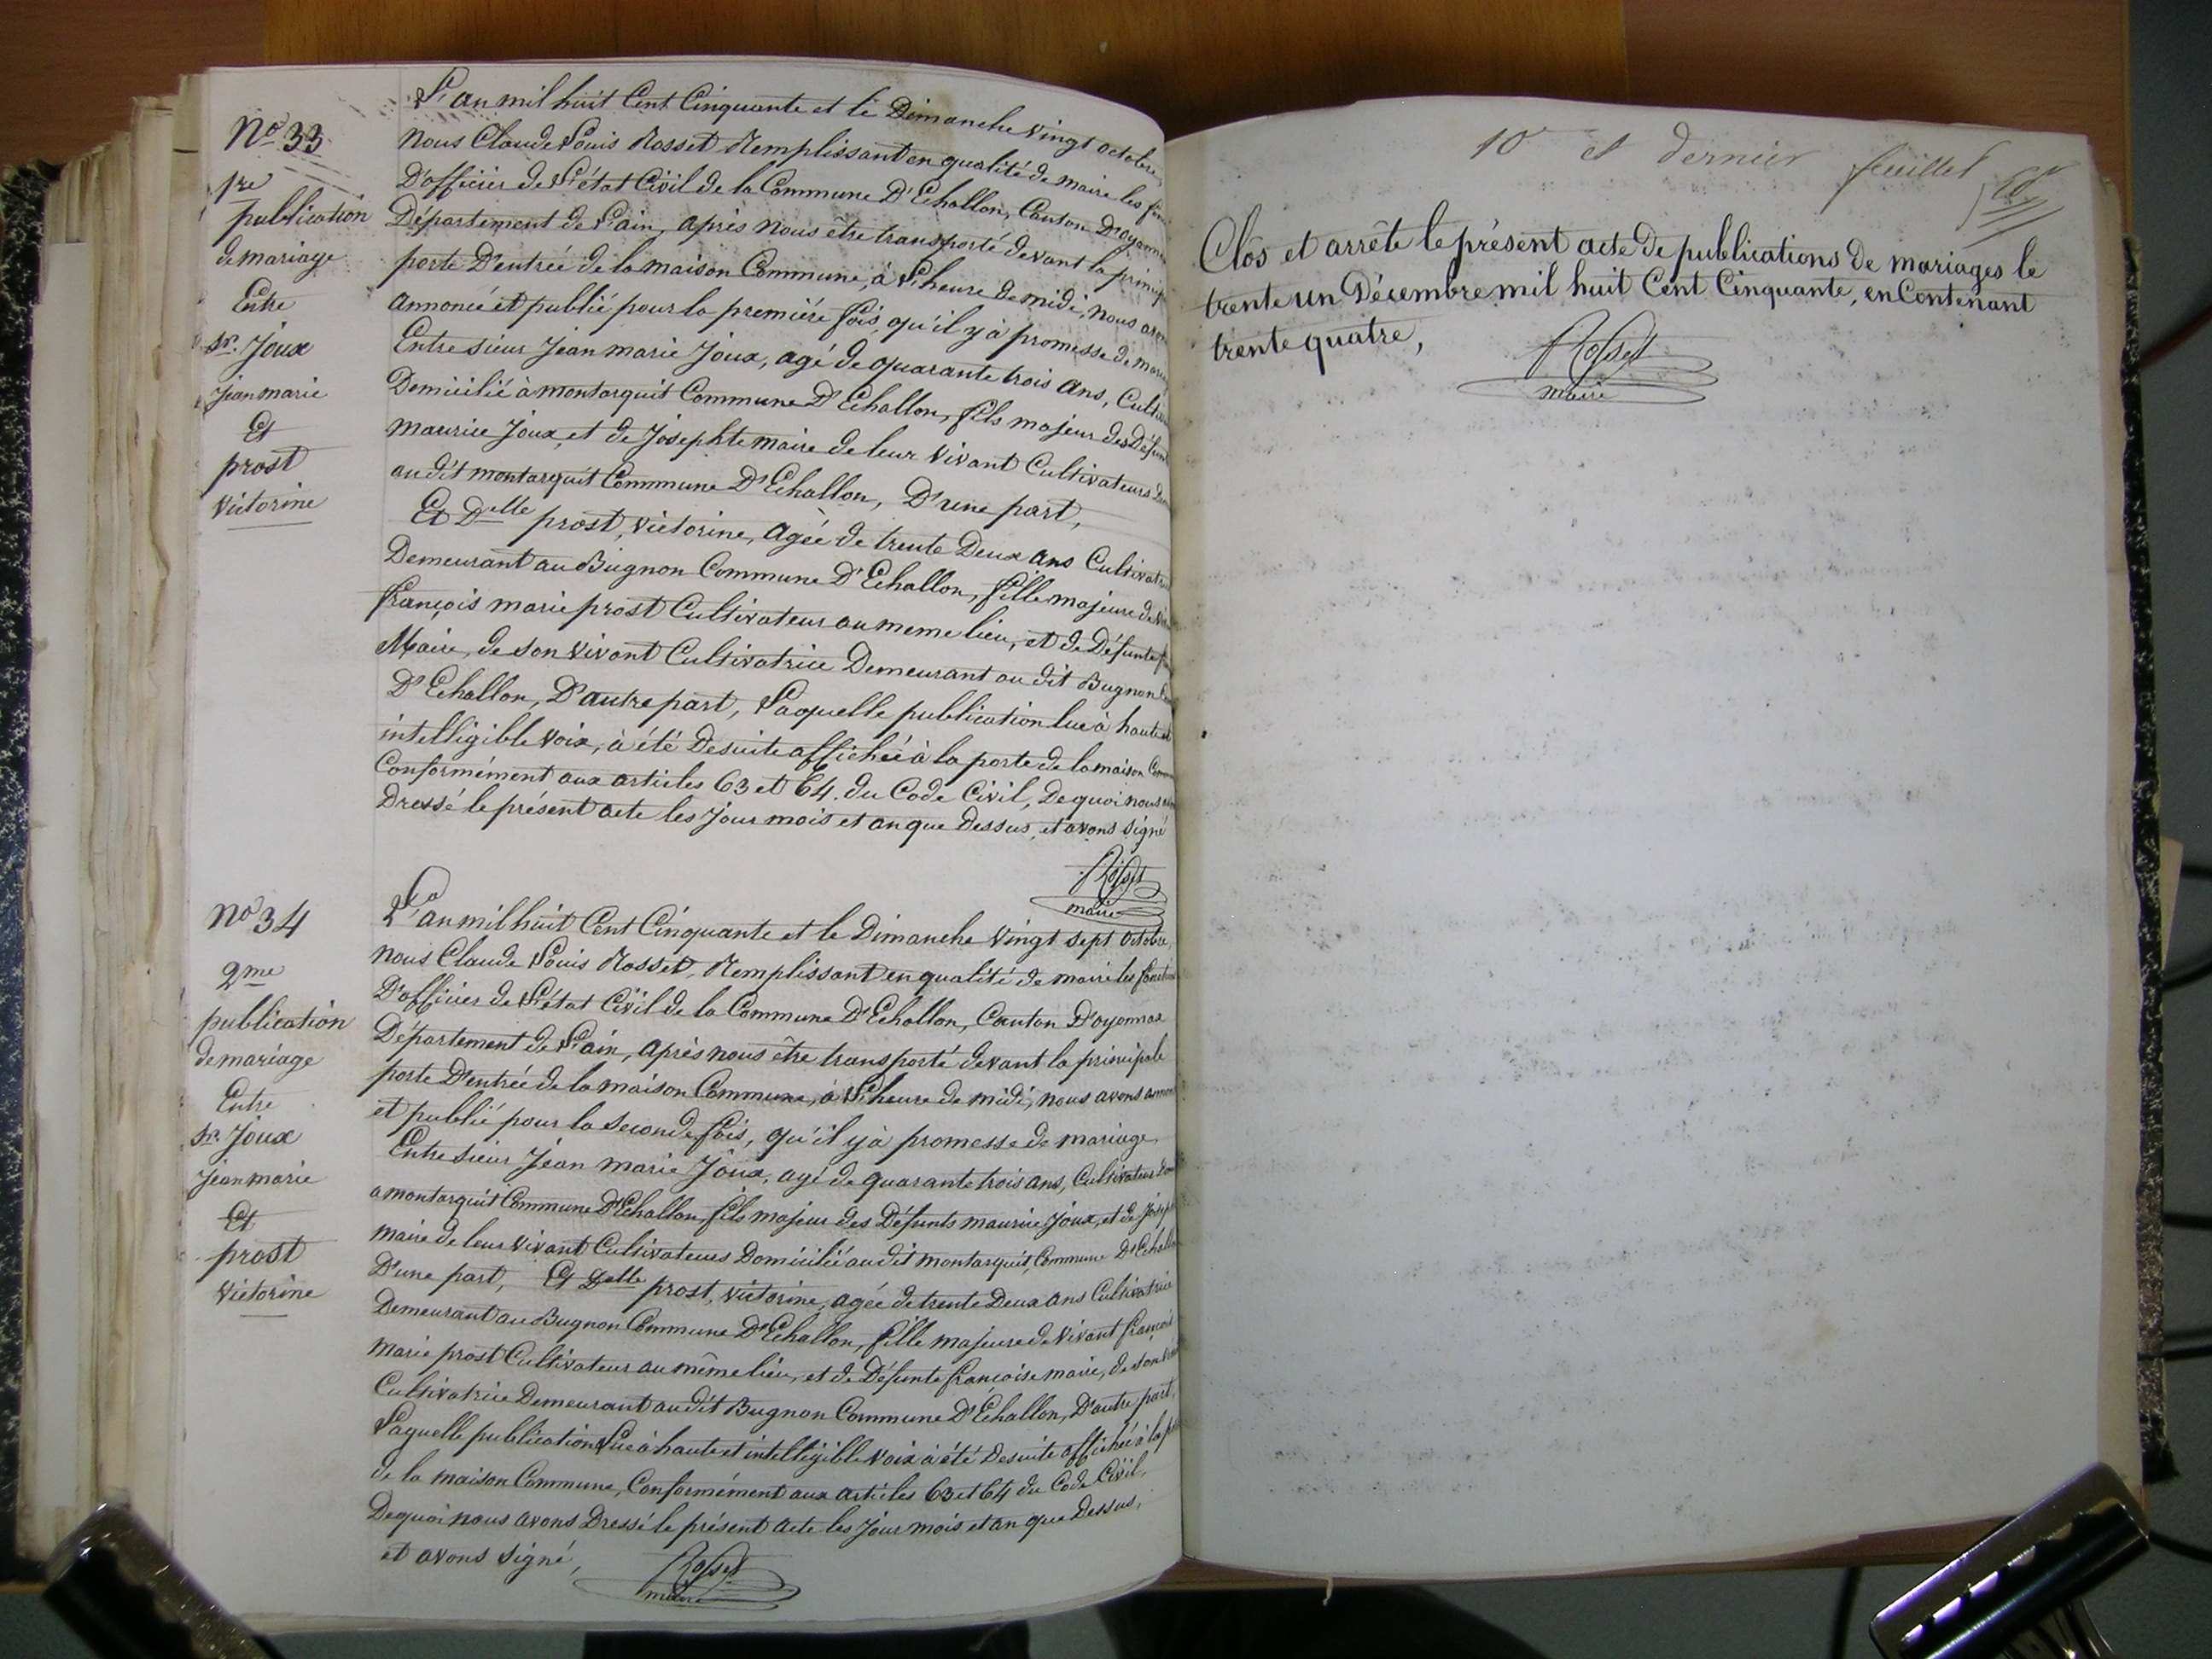 N° 33
1re
publication
de mariage
Entre
Sr. Joux
Jean marie
Et
prost
victorine
L'an mil huit Cent Cinquante et le Dimanche vingt octobre,
nous Claude Louis Rosset Remplissant en qualité de maire les
D'officier de L'état Civil de la Commune D'Echallon, Canton
Département de L'ain, après nous être transporté devant la
porte D'entrée de la maison Commune, à L'heure de midi, nous
annoncé et publié pour la première fois, qu'il y à promesse de
Entre sieur Jean marie Joux, agé de quarante trois ans,
Domicilié à montarquit Commune D'Echallon, fils majeur des
maurice Joux, et de Josephte maire de leur vivant Cultivateurs
au dit montarquit Commmune D'Echallon, D'une part,
Et Delle prost, victorine, agée de trente Deux ans
Demeurant au Bugnon Commune D'Echallon, fille majeure de
françois marie prost Cultivateur au meme lieu, et de Défunte
Maire, de son vivant Cultivatrice Demeurant au dit Bugnon
D'Echallon, D'autre part, Laquelle publication lue à haute et
intelligible voix, à été Desuite affichée à la porte de la maison
Conformément aux articles 63 et 64. du Code Civil, De quoi nous
Dressé le présent acte les Jour mois et an que Dessus, et avons signé
Rosset
maire
n° 34
2me
publication
de mariage
Entre
Sr. Joux
Jean marie
Et
prost
victorine
L'an mil huit Cent Cinquante et le Dimanche vingt sept octobre
nous Claude Louis Rosset, Remplissant en qualité de maire les
D'officier de L'état Civil de la Commune D'Echallon, Canton D'oyonnax
Département de L'ain, après nous être transporté devant la principale
porte D'entrée de la maison Commune, à L'heure de midi, nous avons
et publié pour la seconde fois, qu'il y à promesse de mariage
Entre sieur Jean marie Joux, agé de quarante trois ans, Cultivateur
a montarquit Commune D'Echallon, fils majeur des Défunts maurice Joux, et de
maire de leur vivant Cultivateurs Domicilié au dit montarquit, Commune
D'une part, Et Delle prost, victorine, agée de trente Deux ans Cultivatrice
Demeurant au Bugnon Commune D'Echallon, fille majeure de vivant françois
marie prost Cultivateur au même lieu, et de Défunte françoise maire, de son
Cultivatrice Demeurant au dit Bugnon Commune D'Echallon, D'autre part,
Laquelle publication Lue à haute et intelligible voix à été Desuite affichée à la
de la maison Commune, Conformément aux articles 63 et 64 du Code Civil,
De quoi nous avons Dressé le présent acte les Jour mois et an que Dessus,
et avons signé,
Rosset
maire
10e et dernier feuillet
Clos et arrête le présent acte de publications de mariages le
trente un Décembre mil huit Cent Cinquante, en Contenant
trente quatre,
Rosset
maire